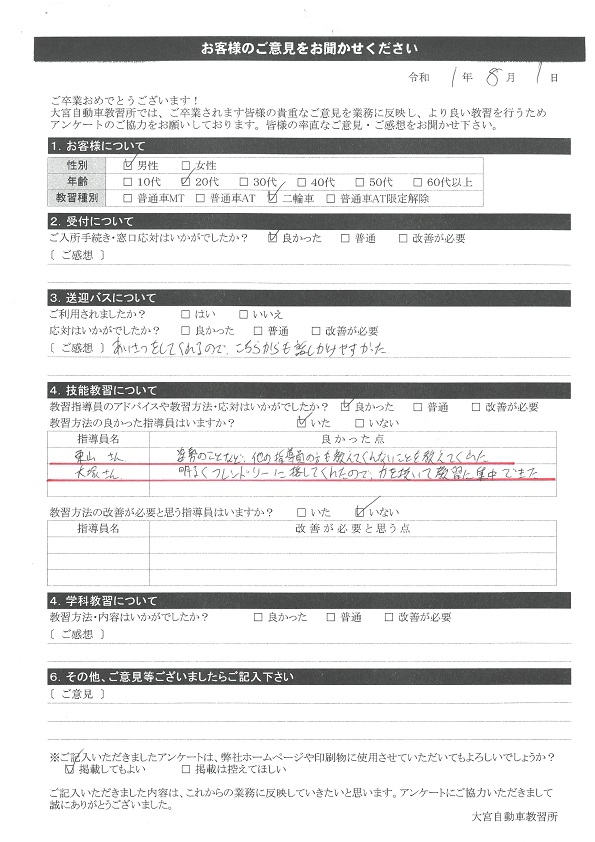 お客様のご意見をお聞かせください
令和 1年 8月 1日
ご卒業おめでとうございます！
大宮自動車教習所では、ご卒業されます皆様の貴重なご意見を業務に反映し、より良い教習を行うため
アンケートのご協力をお願いしております。皆様の率直なご意見・ご感想をお聞かせ下さい。
1. お客様について
性別 ☑男性 □女性
年齢 □10代 ☑20代 □30代 □40代 □50代 □60代以上
教習種別 □普通車MT □普通車AT ☑二輪車 □普通車AT限定解除
2. 受付について
ご入所手続き・窓口応対はいかがでしたか？ ☑良かった □普通 □改善が必要
〔ご感想〕
3. 送迎バスについて
ご利用されましたか？ □はい □いいえ
応対はいかがでしたか？ □良かった □普通 □改善が必要
〔ご感想〕あいさつをしてくれるので、こちらからも話しかけやすかった
4. 技能教習について
教習指導員のアドバイスや教習方法・応対はいかがでしたか？ ☑良かった □普通 □改善が必要
教習方法の良かった指導員はいますか？ ☑いた □いない
指導員名 良かった点
東山さん 姿勢のことなど、他の指導員の方も教えてくんないことを教えてくれた
大塚さん 明るくフレンドリーに接してくれたので、力を抜いて教習に集中できた
教習方法の改善が必要と思う指導員はいますか？ □いた ☑いない
指導員名 改善が必要と思う点
4. 学科教習について
教習方法・内容はいかがでしたか？ □良かった □普通 □改善が必要
〔ご感想〕
6. その他、ご意見等ございましたらご記入下さい
〔ご意見〕
※ご記入いただきましたアンケートは、弊社ホームページや印刷物に使用させていただいてもよろしいでしょうか？
☑掲載してもよい □掲載は控えてほしい
ご記入いただきました内容は、これからの業務に反映していきたいと思います。アンケートにご協力いただきまして
誠にありがとうございました。
大宮自動車教習所